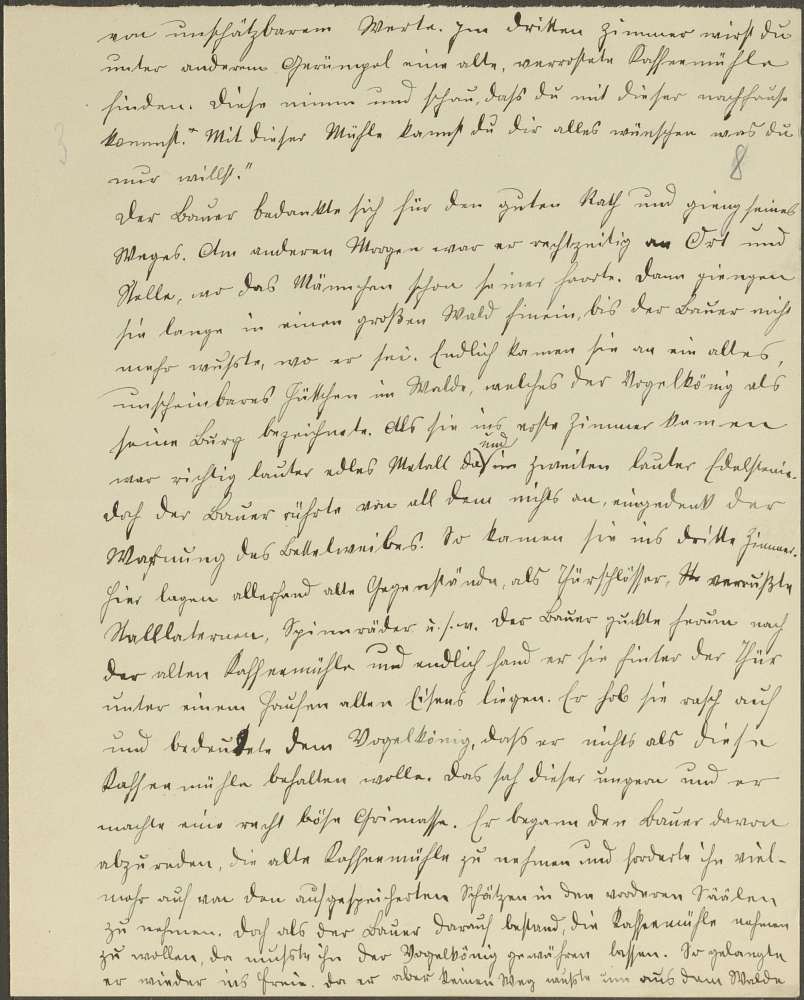 von unschätzbarem Werte. Im dritten Zimmer wirst du
unter anderem Gerümpel eine alte, verrostete Kaffeemühle
finden. Diese nimm und schau, dass du mit dieser nachhause
kommst. Mit dieser Mühle kannst du dir alles wünschen was du
3
8
nur willst."
Der Bauer bedankte sich für den guten Rath und gieng seines
Weges. Am anderen Morgen war er rechtzeitig an Ort und
Stelle, wo das Männchen schon seiner harrte. Dann giengen
sie lange in einen großen Wald hinein, bis der Bauer nicht
mehr wusste, wo er sei. Endlich kamen sie an ein altes,
unscheinbares Hüttchen im Walde, welches der Vogelkönig als
seine Burg bezeichnete. Als sie ins erste Zimmer kamen
war richtig lauter edles Metall da und im zweiten lauter Edelsteine.
doch der Bauer rührte von all dem nichts an, eingedenk der
Warnung des Bettelweibes. So kamen sie ins dritte Zimmer.
Hier lagen allerhand alte Gegenstände, als Thürschlösser, verrußte
Stalllaternen, Spinnräder u.s.w. Der Bauer guckte herum nach
der alten Kaffeemühle und endlich fand er sie hinter der Thür
unter einem Haufen alten Eisens liegen. Er hob sie rasch auf
und bedeutete dem Vogelkönig, dass er nichts als diese
Kaffeemühle behalten wolle. Das sah dieser ungern und er
machte eine recht böse Grimasse. Er begann den Bauer davon
abzureden, die alte Kaffeemühle zu nehmen und forderte ihn viel-
mehr auf von den aufgespeicherten Schätzen in den vorderen Säälen
zu nehmen. Doch als der Bauer darauf bestand, die Kaffeemühle nehmen
zu wollen, da musste ihn der Vogelkönig gewähren lassen. So gelangte
er wieder ins Freie. Da er aber keinen Weg wusste um aus dem Walde